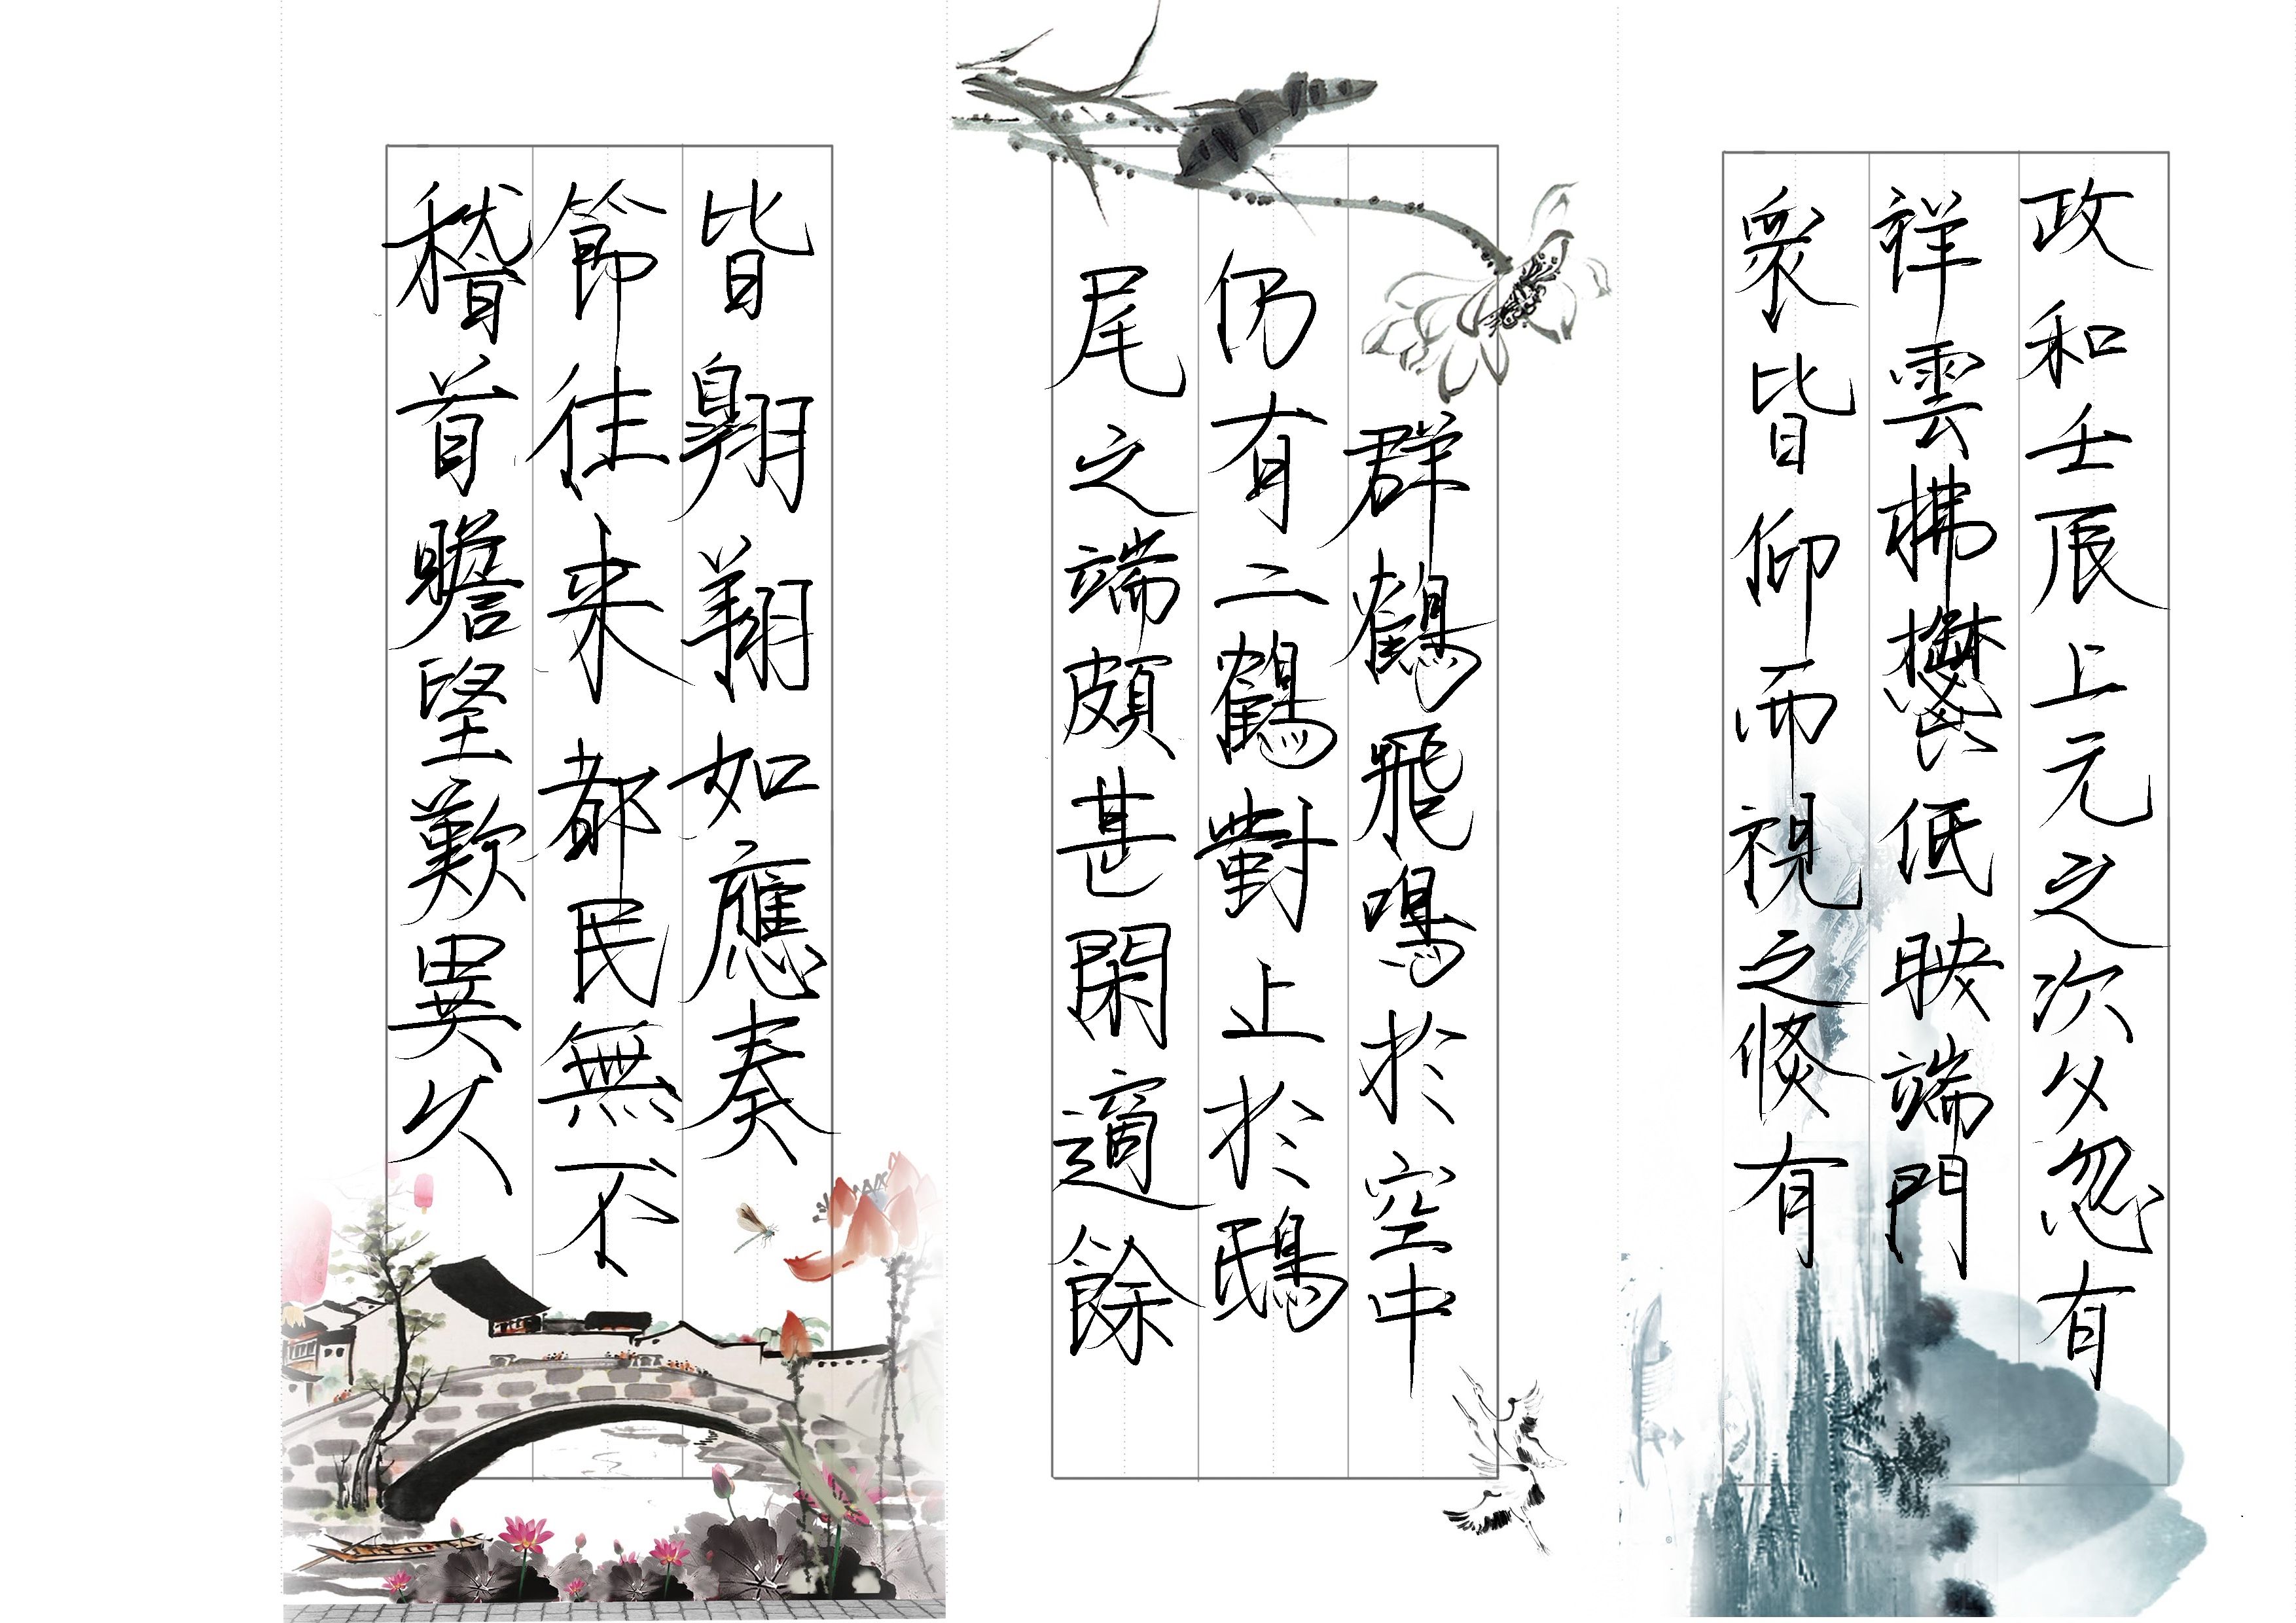 政和壬辰上元之次夕忽有
祥雲拂鬱低映端門
衆皆仰而視之倐有
群鶴飛鳴於空中
仍有二鶴對止於鴟
尾之端頗甚閑適餘
皆翱翔如應奏
節往来都民無不
稽首瞻望歎異久